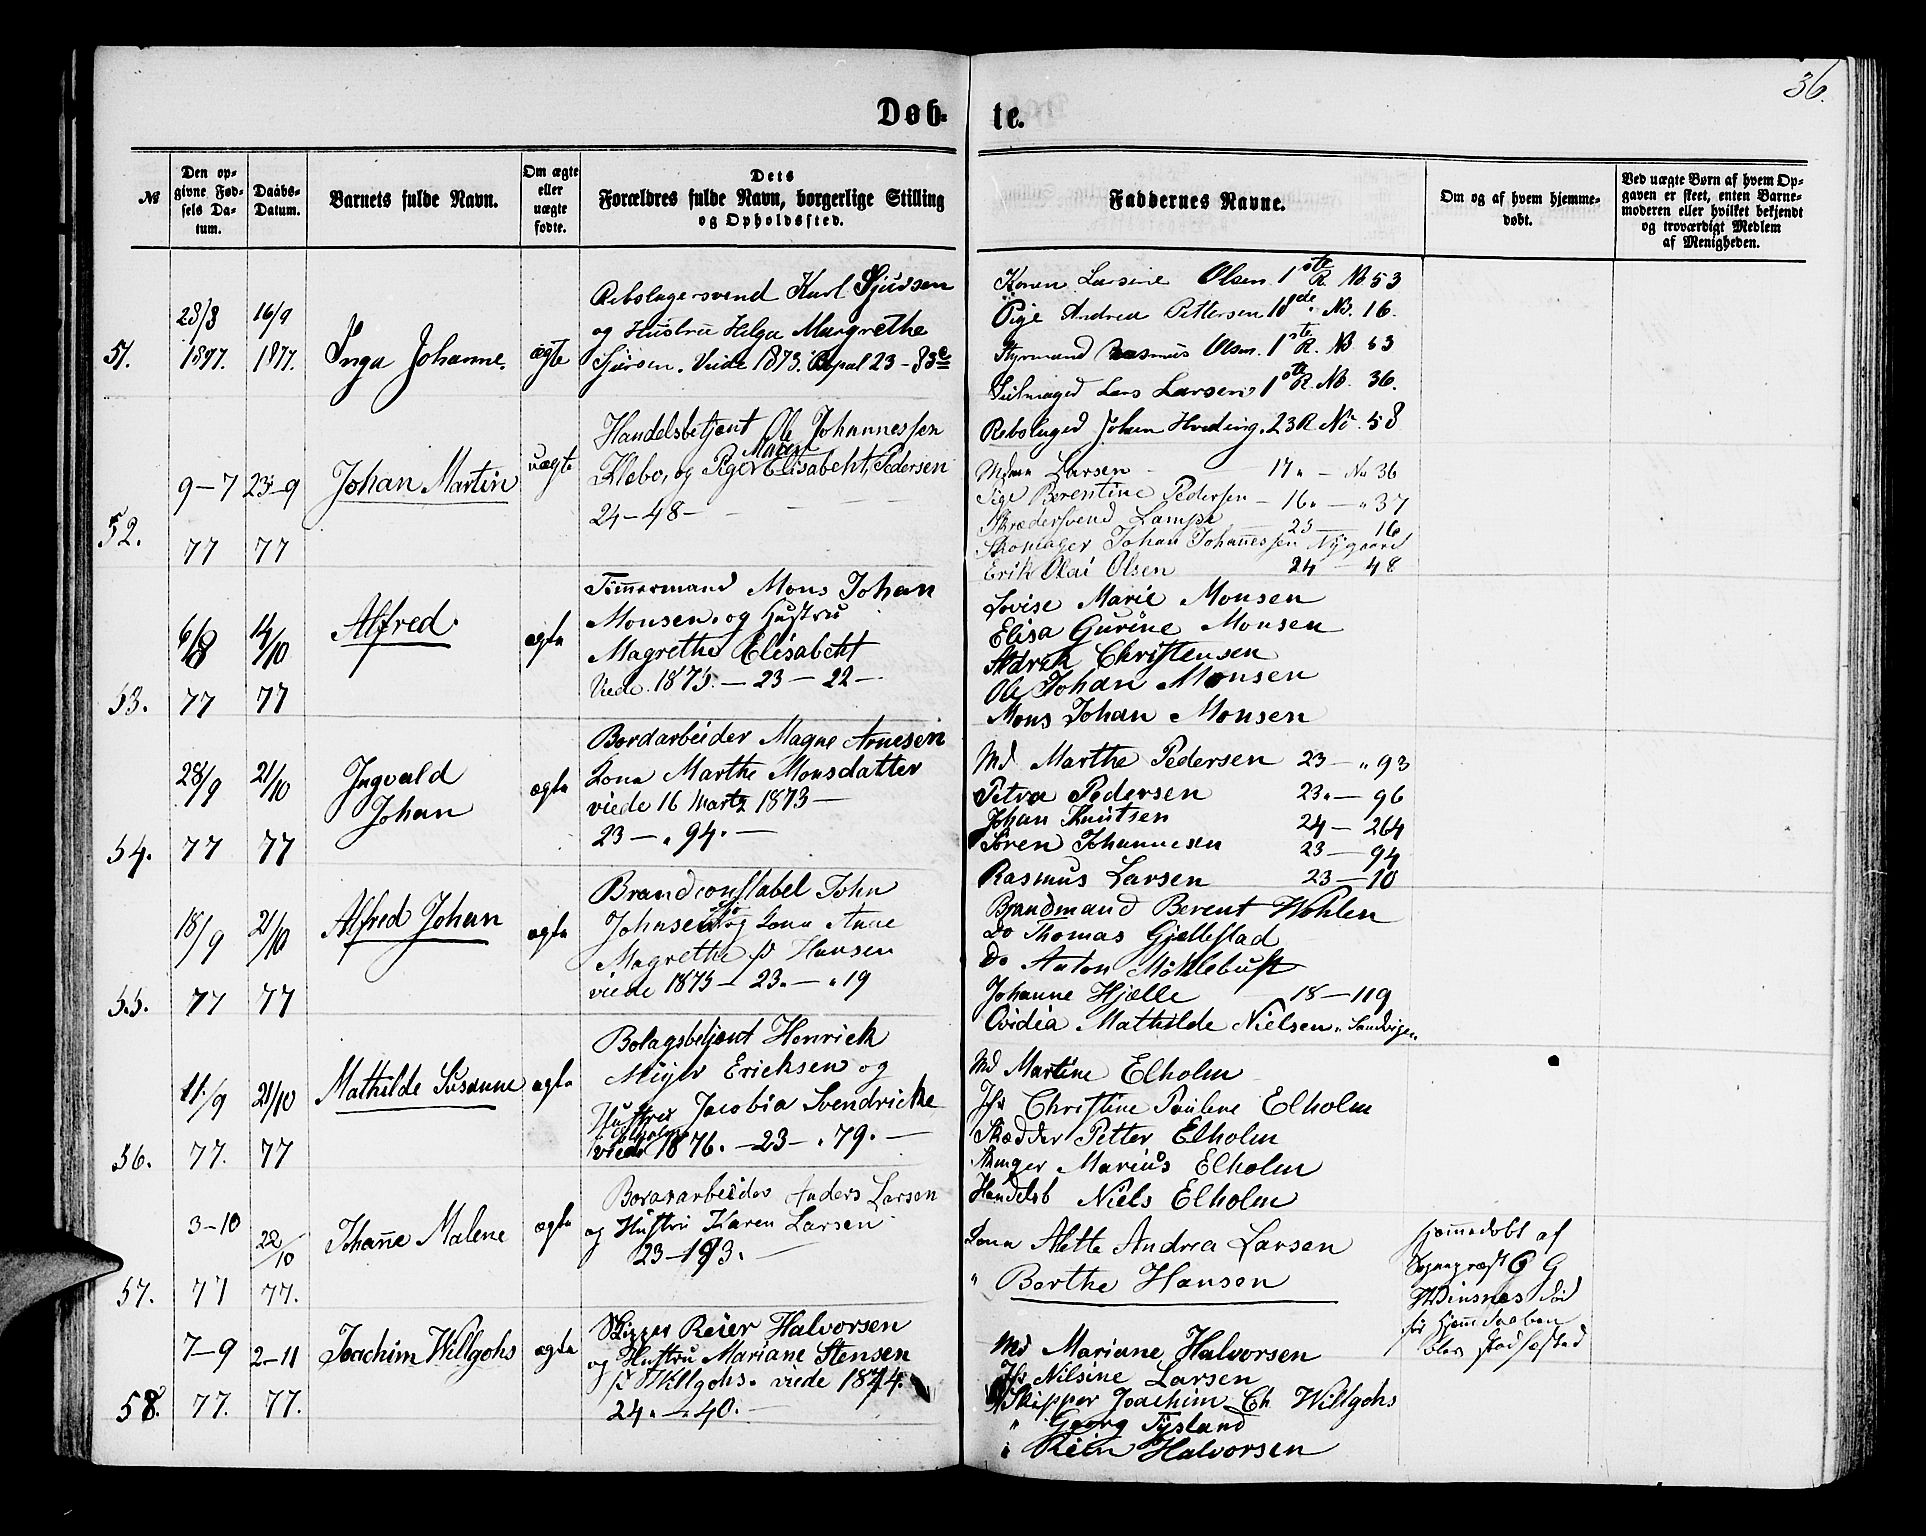 36.
Døb-
te.
No
Den op-
givne Fød-
sels Da-
tum.
Daabs-
Datum.
Barnets fulde Navn.
Om ægte
eller
uægte
fødte.
Dets
Forældres fulde Navn, borgerlige Stilling
og Opholdssted.
Faddernes Navne.
Om og af hvem hjemme-
døbt.
Ved uægte Børn af hvem Op-
gaven er skeet, enten Barne-
moderen eller hvilket bekjendt
og troværdigt Medlem
af Menigheden.
51.
28/8
1877.
16/9
1877.
Inga Johanne.
ægte
Rebslagersvend Karl Sjursen
og Hustru Helga Margrethe
Sjursen. Viede 1873. 23 - 83
Karen Larsine Olsen. 1ste R. No 53
Pige Andrea Pettersen No. 16.
Styrmand Rasmus Olsen. 1ste R. No 53
Seilmager Lars Larsen. 1ste R. No. 36.
Rebslager Johan Hveding. 23 R No. 58
52.
9-7
77
23-9
77
Johan Martin
uægte
Handelsbetjent Ole Johannessen
Klebo, og Pige Elisabeht Pedersen
24-48-
Mdm Larsen - 17 - No 36
Pige Berentine Pedersen - 16 - 37
Skrædersvend Lampe 23 - 16
Skomager Johan Johannessen Nygaard
Erik Olai Olsen 24 - 48
53.
6/8
77
14/10
77
Alfred.
ægte
Tømmermand Mons Johan
Monsen. og Hustru
Magrethe Elisabeht
Viede. 1875. - 23 - 22 -
Lovise Marie Monsen
Elisa Gurine Monsen
Christensen
Ole Johan Monsen
Mons Johan Monsen
54.
28/9
77
21/10
77
Ingvald
Johan
ægte
Bordarbeider Magne Arnesen
Kona Marthe Monsdatter
viede 16 Marts 1873 -
23 - 94. -
Md Marthe Pedersen 23 - 93
Petra Pedersen 23 - 96
Johan Knutsen 24 - 264
Søren Johannesen 23 - 94
Rasmus Larsen 23 - 10
55.
18/9
77
21/10
77
Alfred Johan
ægte
Brandconstabel John
Johnsen og Kona Anne
Magrethe f Hansen
viede 1875 - 23. - 19
Brandmand Berent Wohlen
Do Thomas Gjellestad
Do Anton Møhlebust
Johanne Hjælle 18 - 119
Ovidia Mathilde Nielsen. Sandvigen
56.
11/9
77.
21/10
77
Mathilde Susanne
ægte
Bolagsbetjent Henrick
Meyer Ericksen og
Hustru Jacobia Svendricke
Elholm
viede 1876. - 23 - 79. -
Md Martine Elholm
Jfr Christine Pauline Elholm
Skædder Petter Elholm
Marius Elholm
Handelsb Niels Elholm
57.
3-10
77
22/10
77.
Johanne Malene
ægte
Anders Larsen
og Hustru Karen Larsen
23-193. -
Kona Alette Andrea Larsen
" Berthe Hansen
hjemmedøbt af
Sognepræst G G
Winsnes død
før Hjemmedaaben
blev stadfæsted
58.
7-9
77.
2-11
77.
Joachim Willgohs
ægte
Skipper Reier Halvorsen
og Hustru Mariane Stensen
f Willgohs. viede 1874.
24. - 40. -
Md Mariane Halvorsen
Jfr Nilsine Larsen
Skipper Joachim Ch Willgohs
" Georg Tysland
" Rein Halvorsen